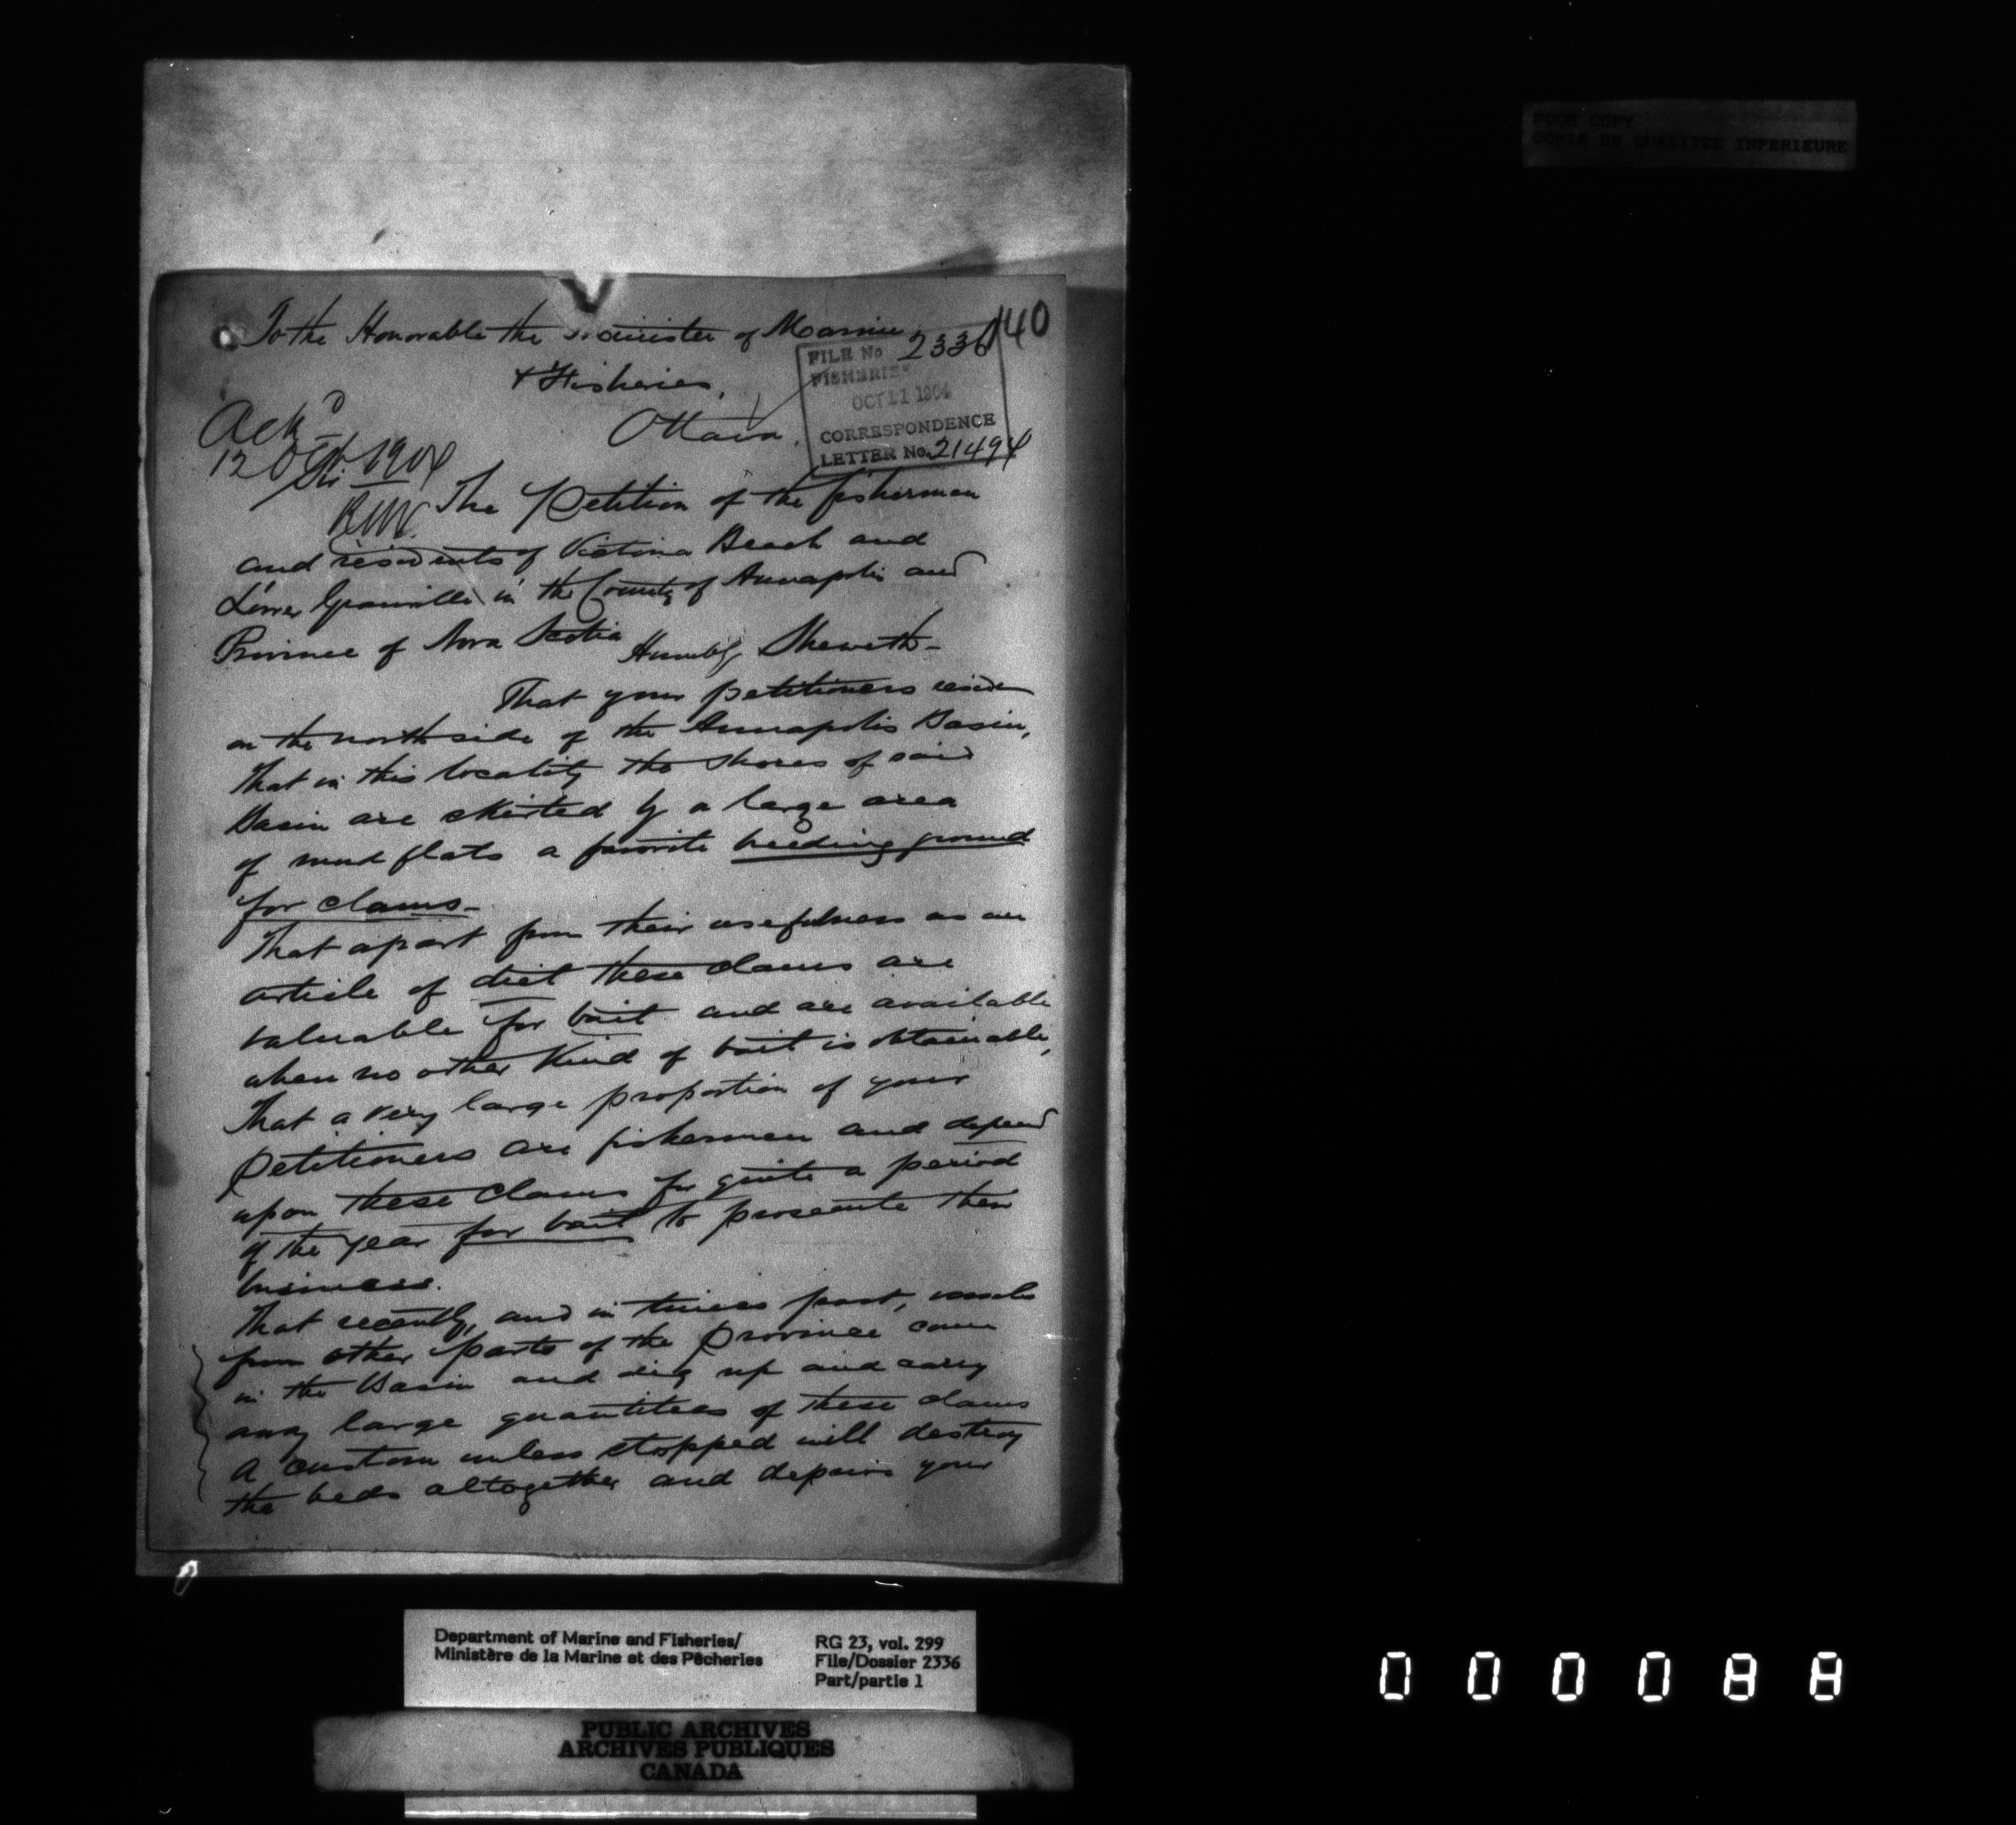 POOR COPY
COPIE DE QUALITEE INFERIEURE
140
To the Honorable the Minister of Marine
& Fisheries,
Ottawa.
FILE No 2336
FISHERIES
OCT 11 1904
CORRESPONDENCE
LETTER No. 21494
Ackd
12 Oct 1904
Sir
The Petition of the fishermen
and residents of Victoria Beach and
Lower Granville in the County of Annapolis and
Province of Nova Scotia Humbly Sheweth-
That your petitioners reside
on the north side of the Annapolis Basin,
That in this locality the shores of said
Basin are skirted by a large area
of mud flats a favorite breeding ground
for clams-
That apart from their usefulness as an
article of diet these clams are
valuable for bait and are available
when no other Kind of bait is obtainable,
That a very large proportion of your
Petitioners are fishermen and depend
upon these Clams for quite a period
of the year for bait to prosecute their
business.
That recently, and in times past, vessels
from other parts of the Province come
in the Basin and dig up and carry
away large quantities of these clams
A custom unless stopped will destroy
the beds altogether and deprive your
Department of Marine and Fisheries/
Ministère de la Marine et des Pêcheries
RG 23, vol. 299
File/Dossier 2336
Part/partie 1
PUBLIC ARCHIVES
ARCHIVES PUBLIQUES
CANADA
000088